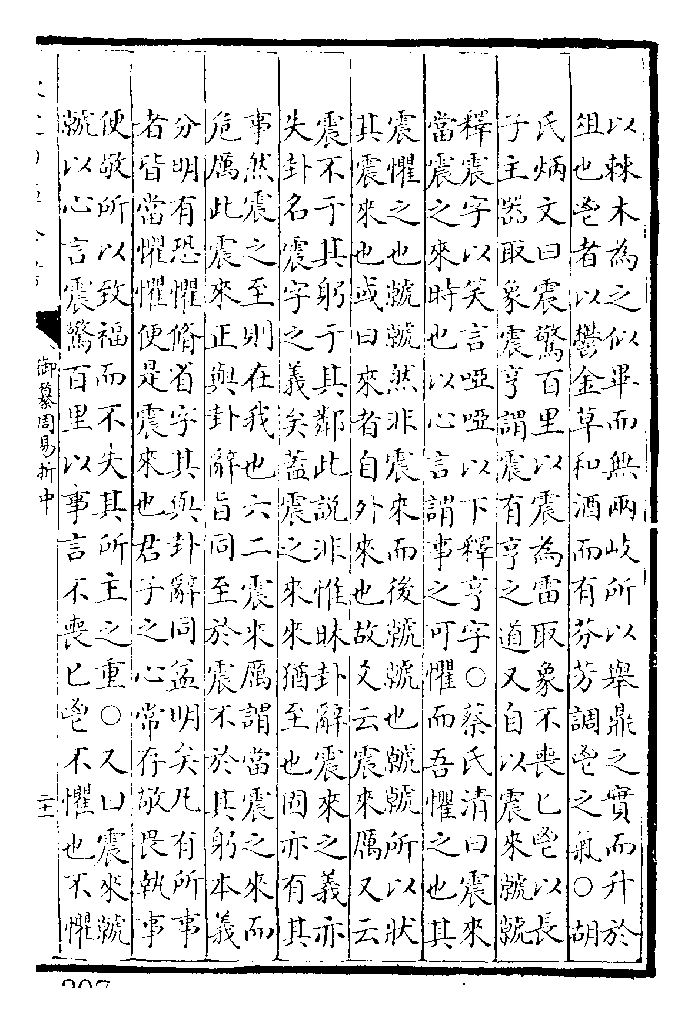 以棘木為之似畢而無兩岐所以舉鼎之實而升於
俎也鬯者以鬱金草和酒而有芬芳調鬯之氣○胡
氏炳文曰震驚百里以震為雷取象不喪匕鬯以長
子主噐取象震亨謂震有亨之道又自以震來虩虩
釋震字以笑言啞啞以下釋亨字○蔡氏清曰震來
當震之來時也以心言謂事之可懼而吾懼之也其
震懼之也虩虩然非震來而後虩虩也虩虩所以狀
其震來也或曰來者自外來也故文云震來厲又云
震不于其躬于其鄰此說非惟昧卦辭震來之義亦
失卦名震字之義矣葢震之來來猶至也固亦有其
事然震之至則在我也六二震来厲謂當震之来而
危厲此震來正與卦辭旨同至於震不於其躬本義
分明有恐懼脩省字其與卦辭同益明矣凡有所事
者皆當懼懼便是震来也君子之心常存敬畏執事
便敬所以致福而不失其所主之重○又曰震來虩
虩以心言震驚百里以事言不喪匕鬯不懼也不懼
御纂周易折中